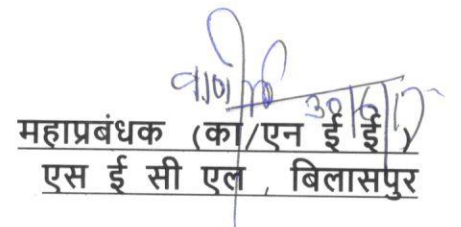 30/6/17
महाप्रबंधक (का/एन ई ई )
एस ई सी एल , बिलासपुर